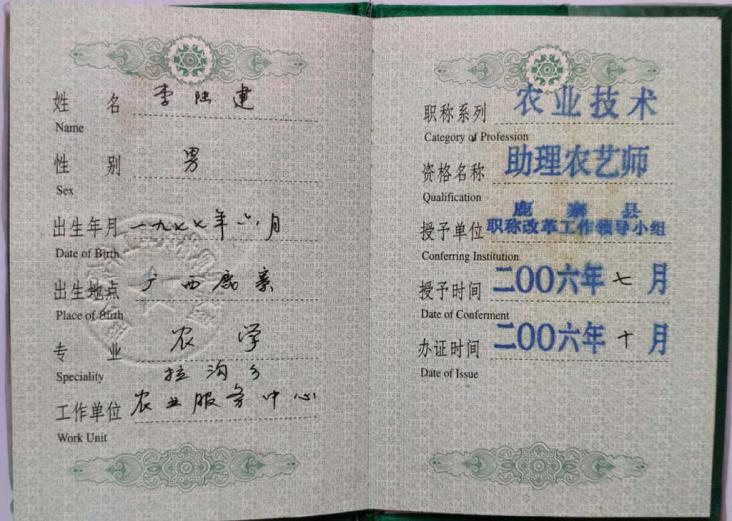 姓 名 李陆建
Name
性 别 男
Sex
出生年月 一九七七年六月
Date of Birth
出生地点 广西鹿寨
Place of Birth
专 业 农学
Speciality
拉沟乡
工作单位 农业服务中心
Work Unit
职称系列 农业技术
Category of Profession
资格名称 助理农艺师
Qualification
鹿寨县
授予单位 职称改革工作领导小组
Conferring Institution
授予时间 二〇〇六年七月
Date of Conferment
办证时间 二〇〇六年十月
Date of Issue